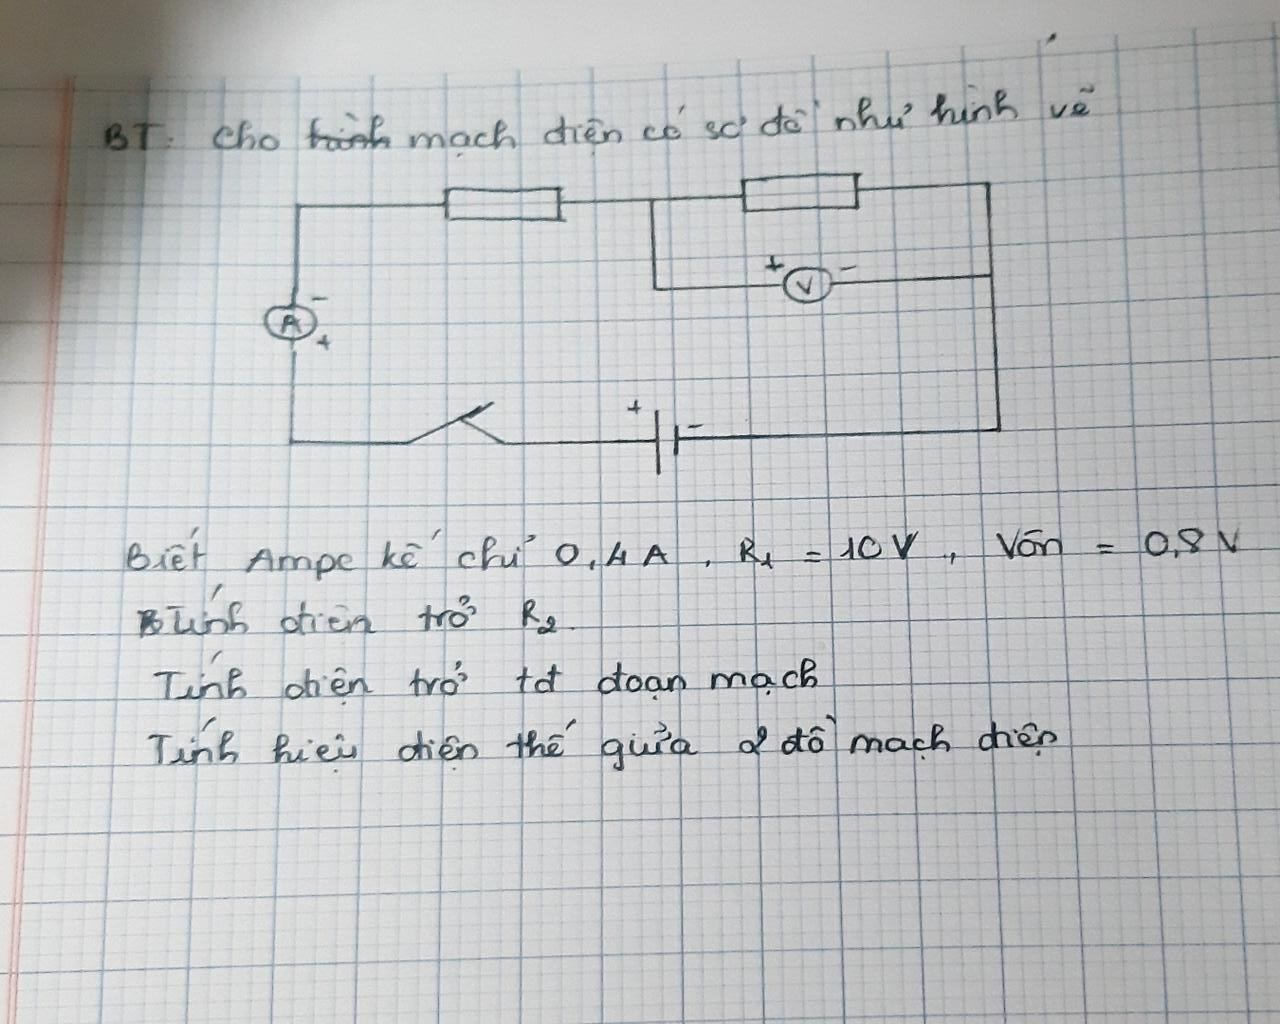 BT: Cho hình mạch điện có sơ đồ như hình vẽ
+ -
V
-
A
+
+ -
Biết Ampe kế chỉ 0,4A, R1 = 10V, Vôn = 0,8V
Tính điện trở R2.
Tính điện trở tđ đoạn mạch
Tính hiệu điện thế giữa 2 đồ mạch điện